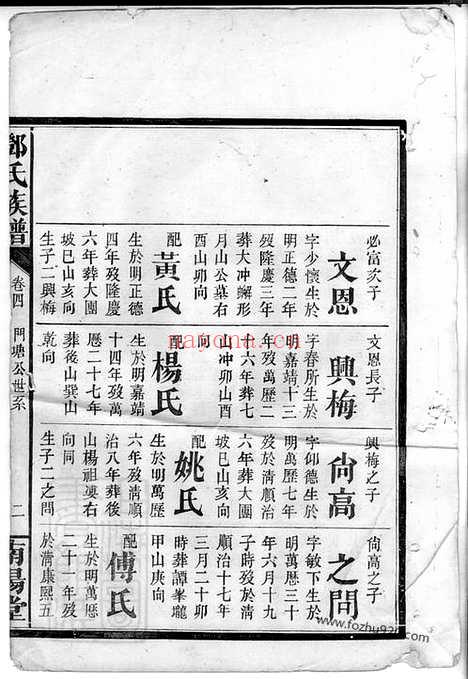 必富次子
文恩
字少懷生於
明正德二年
歿隆慶三年
葬大冲蠏形
月山公墓右
酉山卯向
配
黃氏
生於明正德
四年歿隆慶
六年葬大團
坡巳山亥向
生子二興梅
文恩長子
興梅
字春所生於
明嘉靖十三
年歿萬曆二
十六年葬七
山冲卯山酉
向
配
楊氏
生於明嘉靖
十四年歿萬
曆二十七年
葬後山巽山
乾向
興梅之子
尙高
字仰德生於
明萬曆七年
歿於淸順治
六年葬大團
坡巳山亥向
配
姚氏
生於明萬曆
六年歿淸順
治八年葬後
山楊祖右
向同
生子二之問
尙高之子
之問
字敏下生於
明萬曆三十
年六月十九
子時歿淸
順治十七年
三月二十卯
時葬譚峯壠
甲山庚向
配
傅氏
生於明萬曆
二十一年歿
於淸康熙五
鄭氏族譜
卷四
門塘公世系
二
南陽堂
nayona.cn
www.fozhu920.com